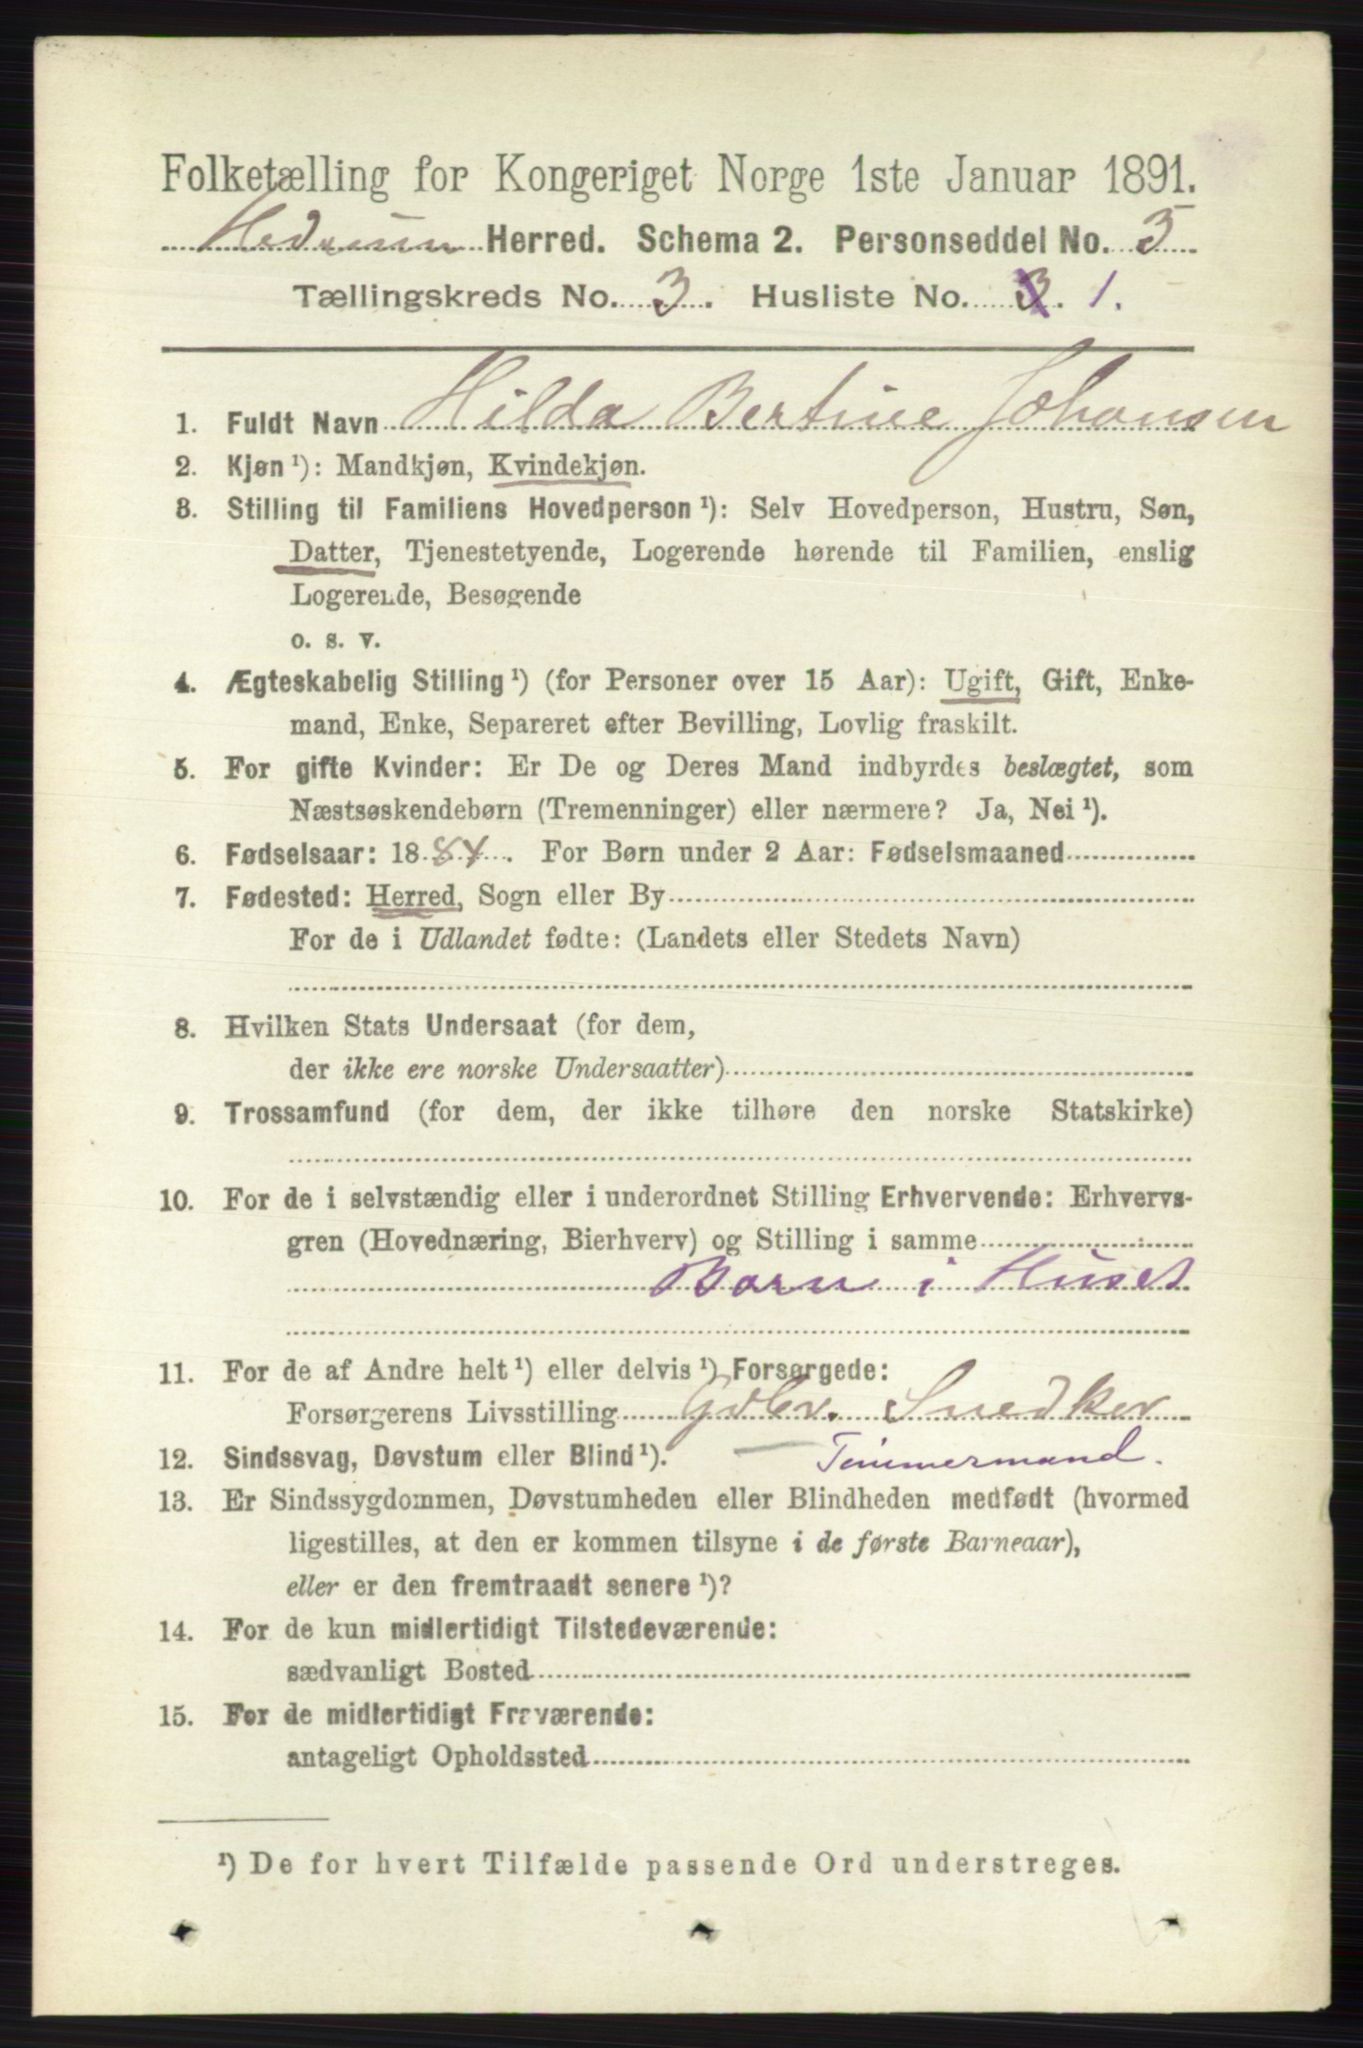 Folketælling for Kongeriget Norge 1ste Januar 1891.
Hedrum Herred. Schema 2. Personseddel No. 5
Tællingskreds No. 3. Husliste No. 3. 1.
1. Fuldt Navn Hilda Bertine Johansen
2. Kjøn ¹): Mandkjøn, Kvindekjøn.
3. Stilling til Familiens Hovedperson ¹): Selv Hovedperson, Hustru, Søn,
Datter, Tjenestetyende, Logerende hørende til Familien, enslig
Logerende, Besøgende
o. s. v.
4. Ægteskabelig Stilling ¹) (for Personer over 15 Aar): Ugift, Gift, Enke-
mand, Enke, Separeret efter Bevilling, Lovlig fraskilt.
5. For gifte Kvinder: Er De og Deres Mand indbyrdes beslægtet, som
Næstsøskendebørn (Tremenninger) eller nærmere? Ja, Nei ¹).
6. Fødselsaar: 1884. For Børn under 2 Aar: Fødselsmaaned
7. Fødested: Herred, Sogn eller By
For de i Udlandet fødte: (Landets eller Stedets Navn)
8. Hvilken Stats Undersaat (for dem,
der ikke ere norske Undersaatter)
9. Trossamfund (for dem, der ikke tilhøre den norske Statskirke)
10. For de i selvstændig eller i underordnet Stilling Erhvervende: Erhvervs-
gren (Hovednæring, Bierhverv) og Stilling i samme
Barn i Huset
11. For de af Andre helt ¹) eller delvis ¹) Forsørgede:
Forsørgerens Livsstilling Gdbr. Snedker
12. Sindssvag, Døvstum eller Blind ¹). — Timmermand.
13. Er Sindssygdommen, Døvstumheden eller Blindheden medfødt (hvormed
ligestilles, at den er kommen tilsyne i de første Barneaar),
eller er den fremtraadt senere ¹)?
14. For de kun midlertidigt Tilstedeværende:
sædvanligt Bosted
15. For de midlertidigt Fraværende:
antageligt Opholdssted
¹) De for hvert Tilfælde passende Ord understreges.